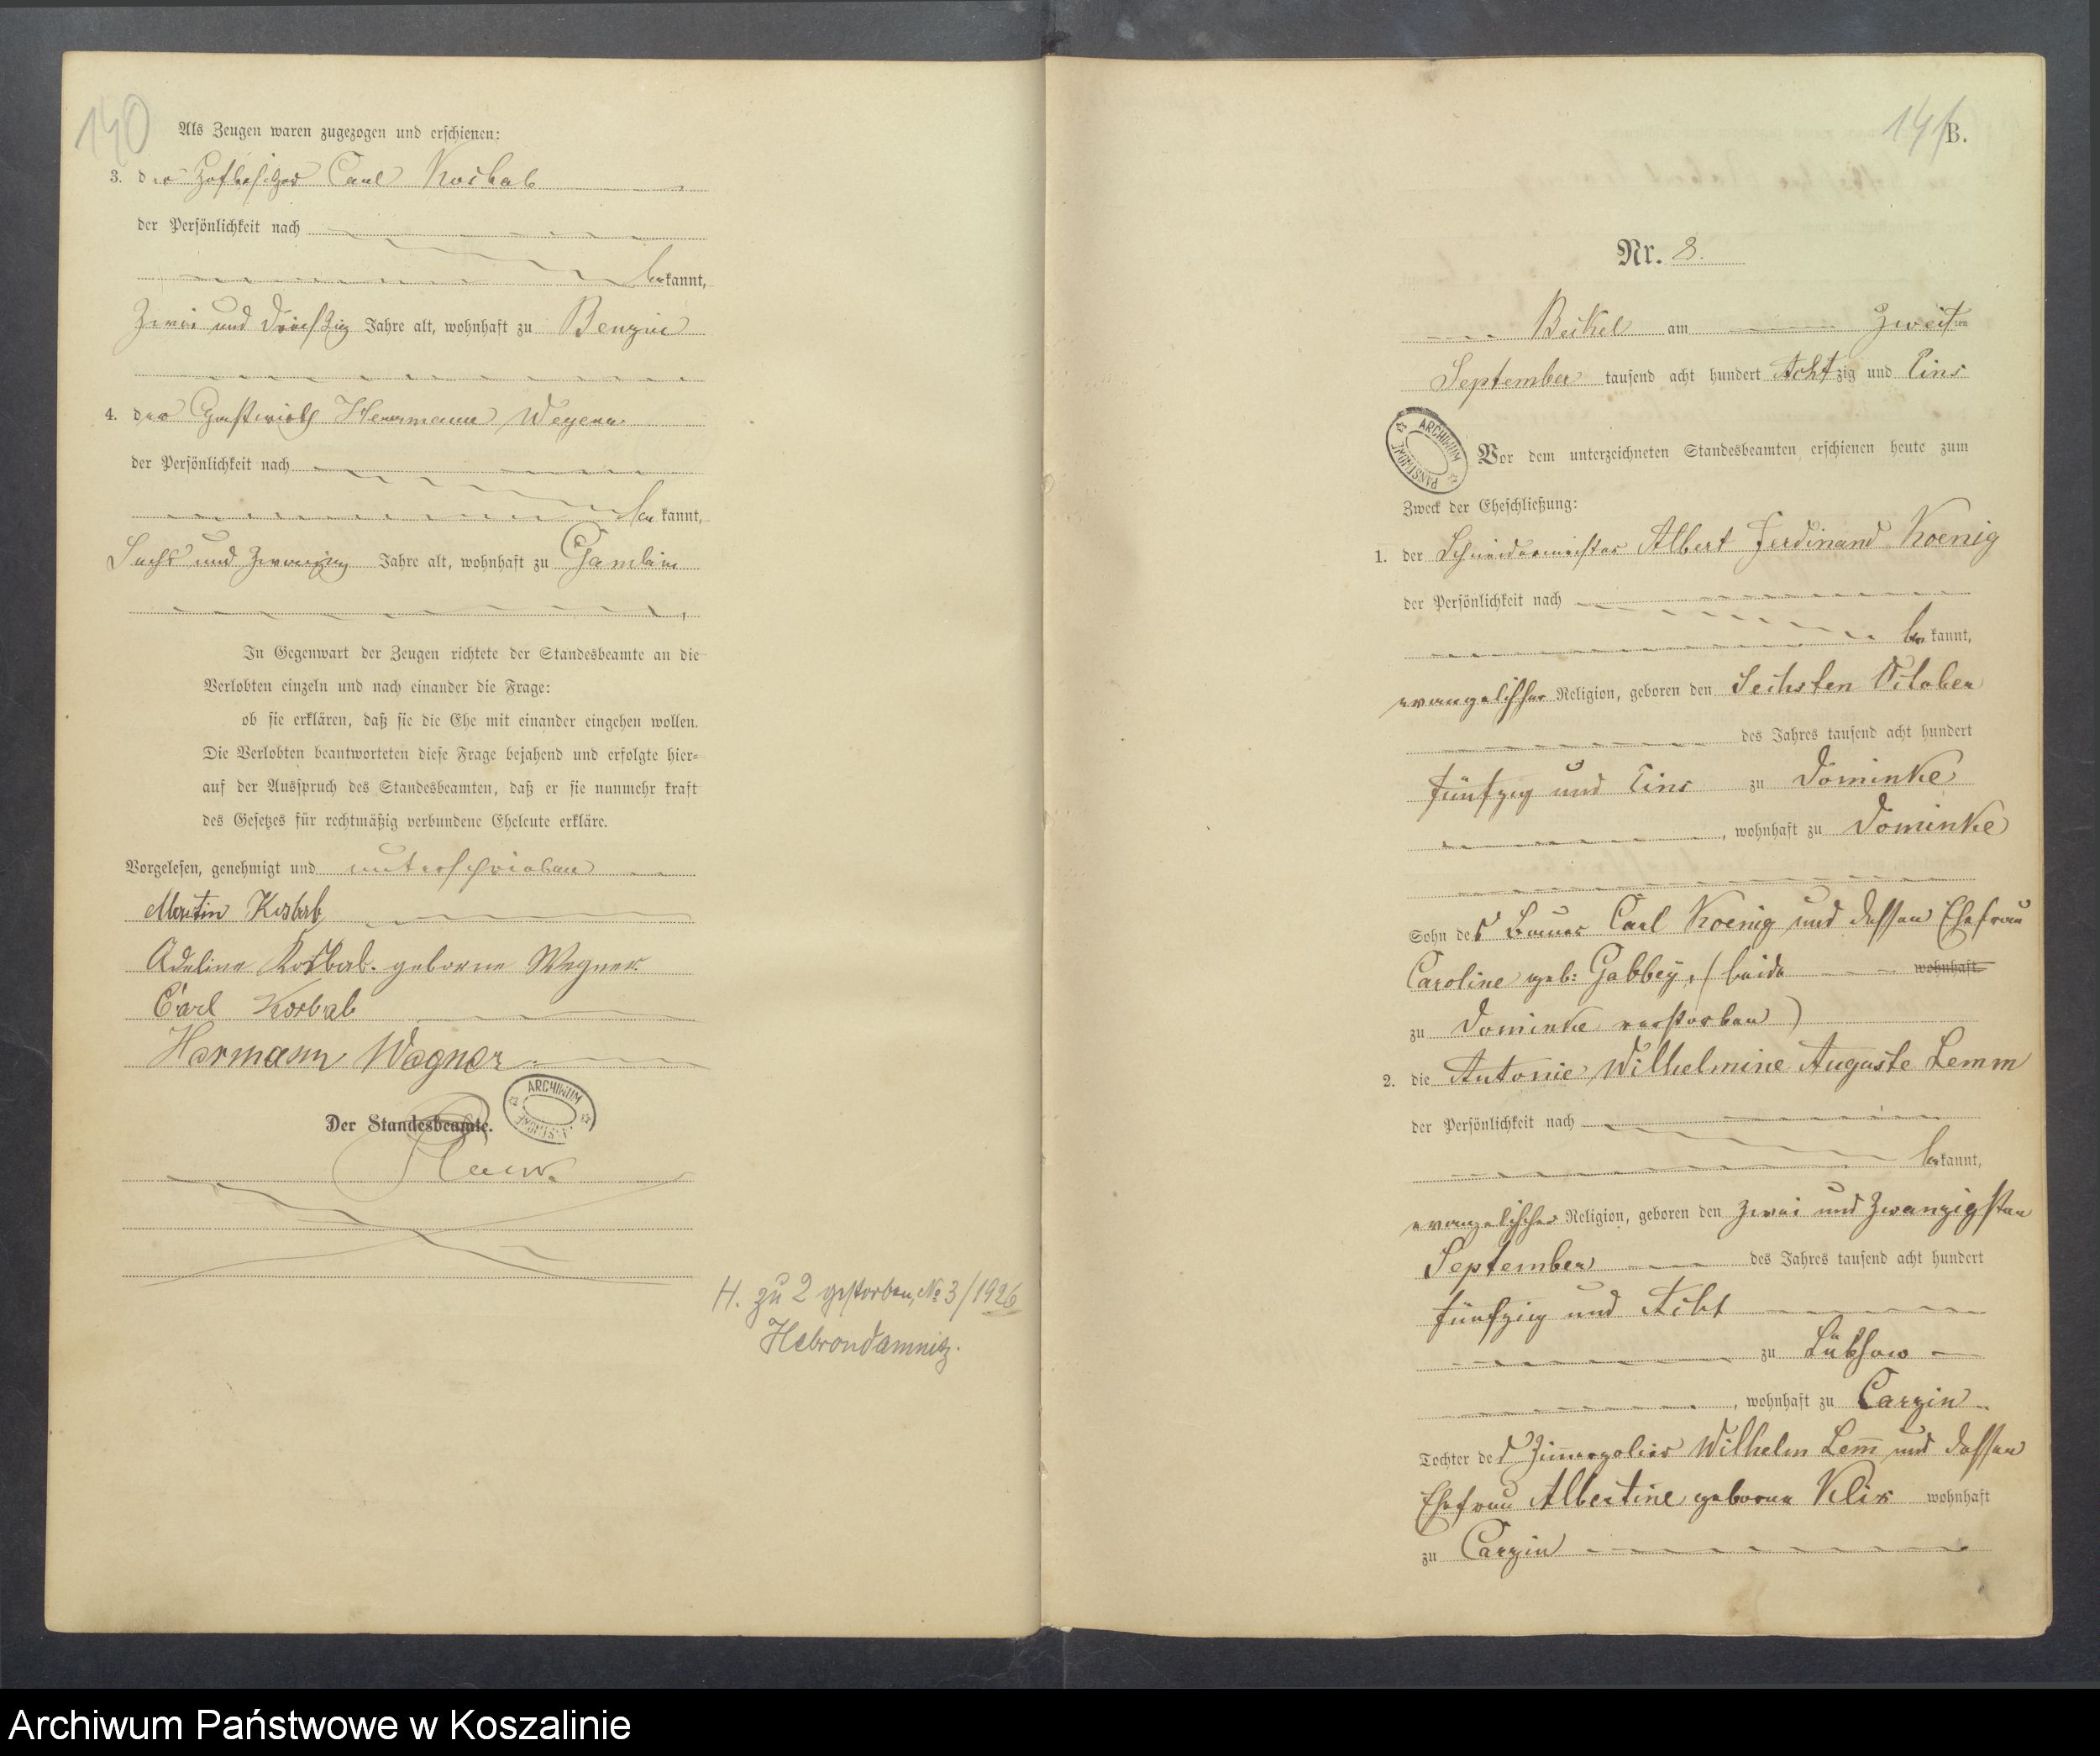 140
Als Zeugen waren zugezogen und erschienen:
3. der Hofbesitzer Carl Kosbab
der Persönlichkeit nach
bekannt,
Zwei und Dreißig Jahre alt, wohnhaft zu Benzin
4. der Gastwirth Herrmann Wegner
der Persönlichkeit nach
bekannt,
Sechs und Zwanzig Jahre alt, wohnhaft zu
In Gegenwart der Zeugen richtete der Standesbeamte an die
Verlobten einzeln und nach einander die Frage:
ob sie erklären, daß sie die Ehe mit einander eingehen wollen.
Die Verlobten beantworteten diese Frage bejahend und erfolgte hier-
auf der Ausspruch des Standesbeamten, daß er sie nunmehr kraft
des Gesetzes für rechtmäßig verbundene Eheleute erkläre.
Vorgelesen, genehmigt und unterschrieben
Martin Kosbab
Adeline Kosbab geborne Wegner
Carl Kosbab
Hermann Wegner
Der Standesbeamte.
ARCHIWUM
H. zu 2 gestorben, No 3/1926
Hebrondamnitz.
141
B.
Nr. 8.
Beckel am Zweiten
September tausend acht hundert Achtzig und Eins
ARCHIWUM PAŃSTWOWE
Vor dem unterzeichneten Standesbeamten erschienen heute zum
Zweck der Eheschließung:
1. der Schneidermeister Albert Ferdinand Koenig
der Persönlichkeit nach
bekannt,
evangelischer Religion, geboren den Sechsten October
des Jahres tausend acht hundert
fünfzig und Eins zu Dominke
, wohnhaft zu Dominke
Sohn des Bauer Carl Koenig und dessen Ehefrau
Caroline geb: Gabbey, (beide wohnhaft
zu Dominke verstorben)
2. die Antonie Wilhelmine Auguste Lemm
der Persönlichkeit nach
bekannt,
evangelischer Religion, geboren den Zwei und Zwanzigsten
September des Jahres tausend acht hundert
fünfzig und Acht
zu Lübsow
, wohnhaft zu Carzin
Tochter des Wilhelm Lem̄ und dessen
Ehefrau Albertine geborne Klix wohnhaft
zu Carzin
Archiwum Państwowe w Koszalinie